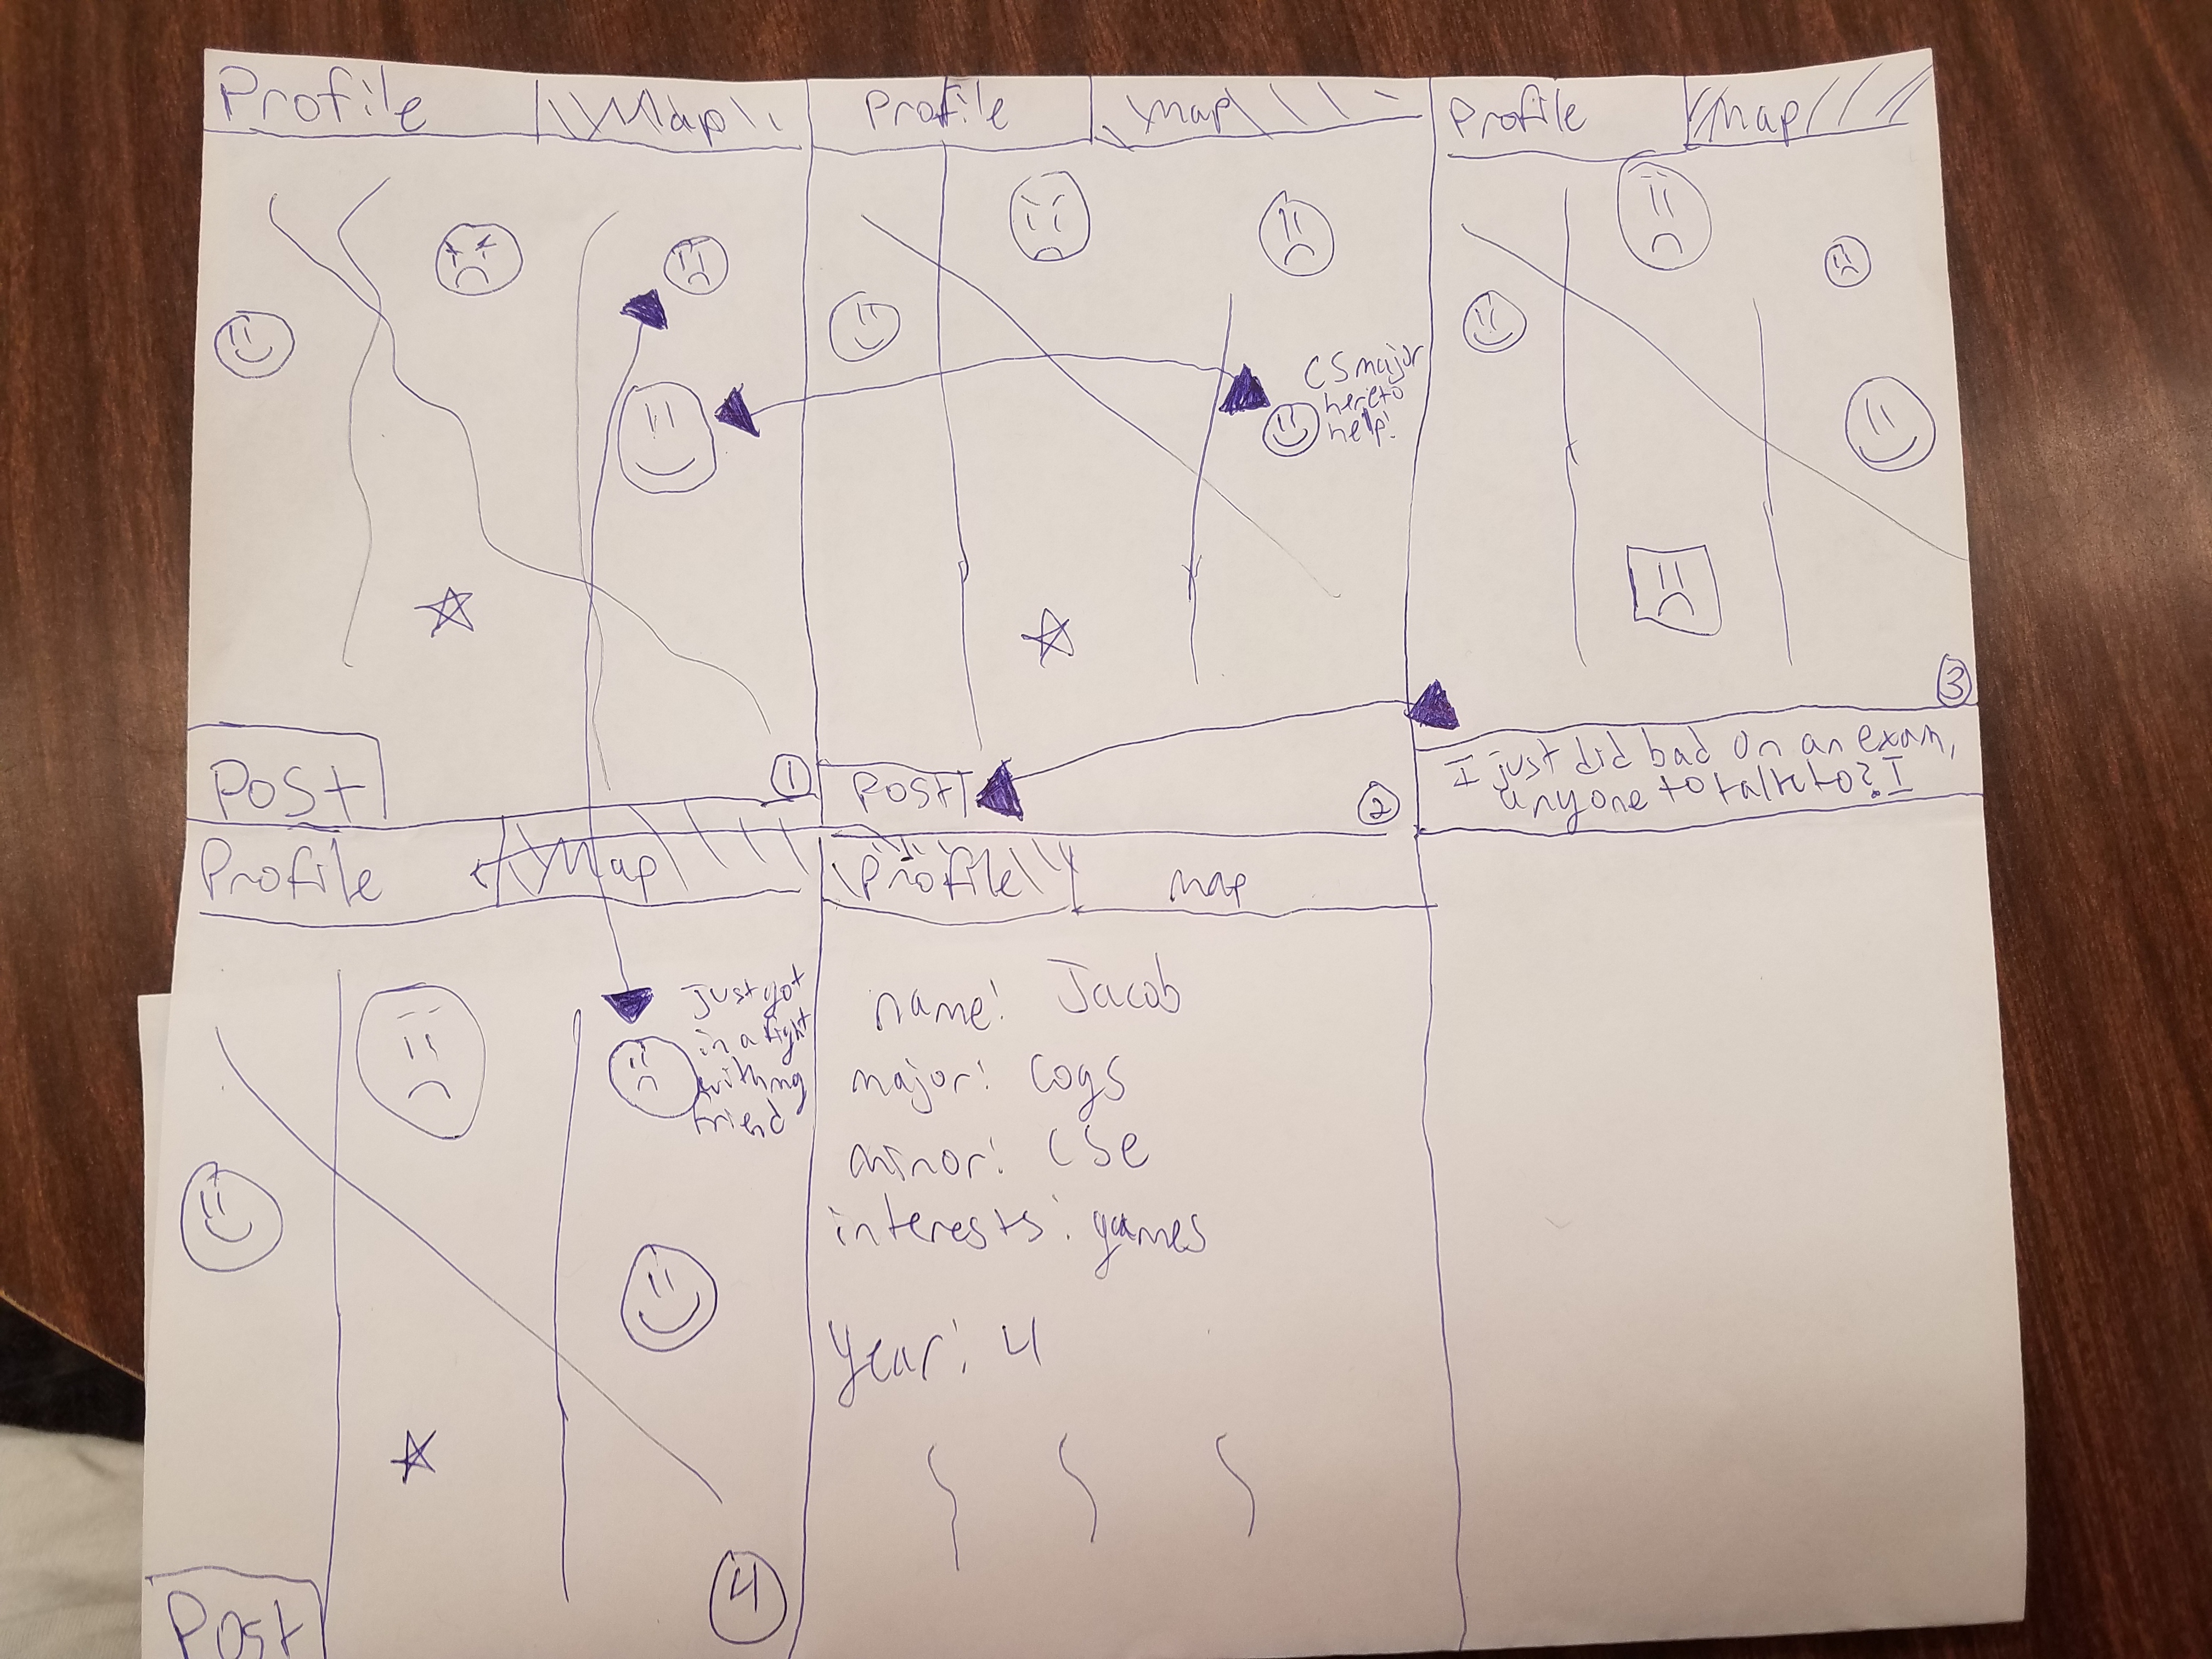 Profile
Map
Post
1
Profile
map
CS major
here to
help!
Post
2
Profile
map
I just did bad on an exam,
anyone to talk to? I
3
Profile
Map
Just got
in a fight
with my
friend
Post
4
Profile
map
name: Jacob
major: Cogs
minor: CSE
interests: games
Year: 4